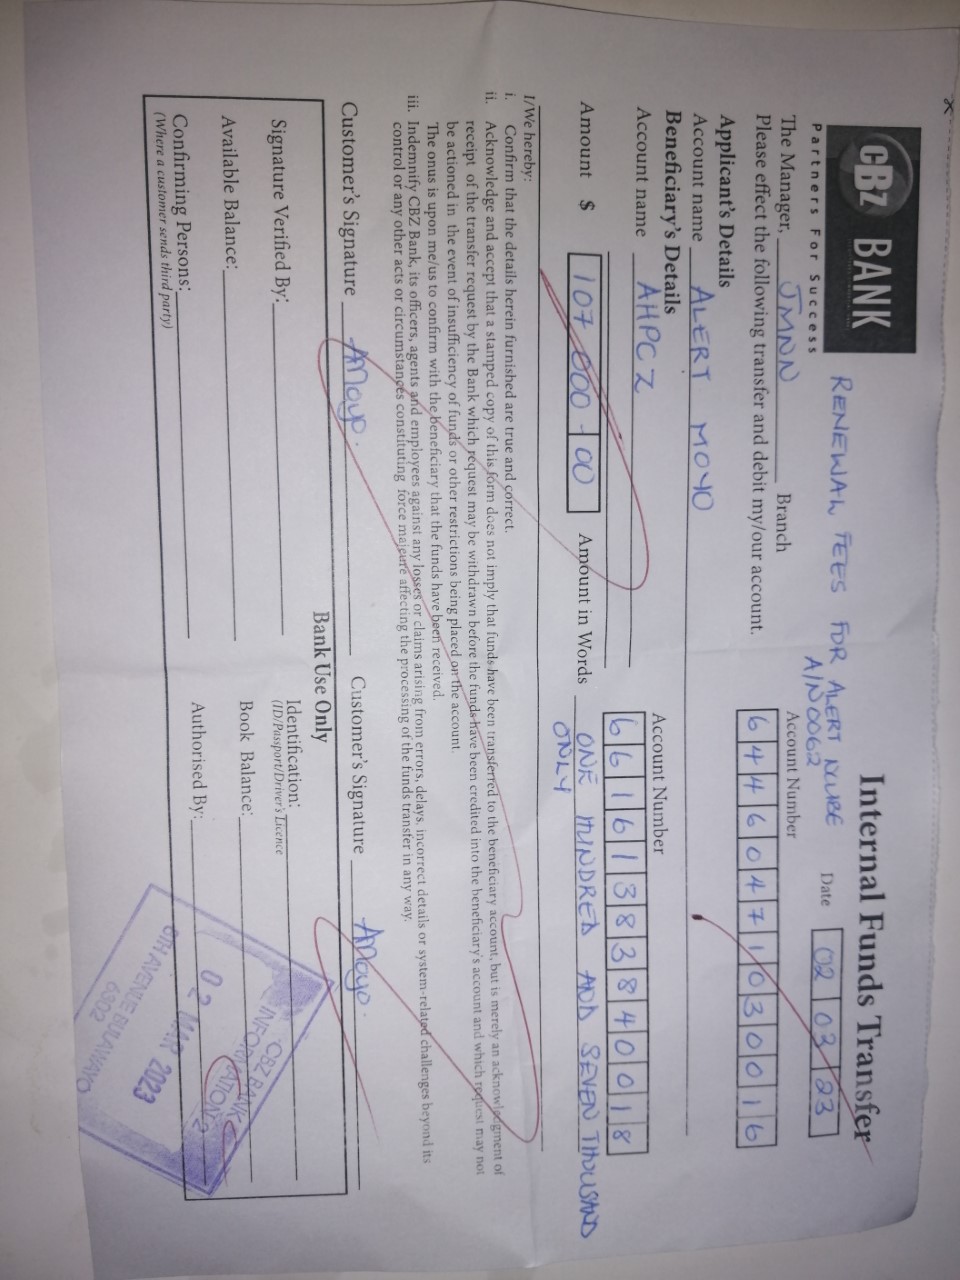 CBZ BANK
Partners For Success
RENEWAL FEES FOR ALERT NCUBE
A/N0062
Internal Funds Transfer
The Manager, JMNN Branch
Date 02 03 23
Please effect the following transfer and debit my/our account.
Applicant's Details
Account Number
Account name ALERT MOYO
64460471030016
Beneficiary's Details
Account name AHPCZ
Account Number
66161383840018
Amount $ 107 000-00 Amount in Words ONE HUNDRED AND SEVEN THOUSAND
ONLY
I/We hereby:
i. Confirm that the details herein furnished are true and correct.
ii. Acknowledge and accept that a stamped copy of this form does not imply that funds have been transferred to the beneficiary account, but is merely an acknowledgment of
receipt of the transfer request by the Bank which request may be withdrawn before the funds have been credited into the beneficiary's account and which request may not
be actioned in the event of insufficiency of funds or other restrictions being placed on the account.
The onus is upon me/us to confirm with the beneficiary that the funds have been received.
iii. Indemnify CBZ Bank, its officers, agents and employees against any losses or claims arising from errors, delays, incorrect details or system-related challenges beyond its
control or any other acts or circumstances constituting force majeure affecting the processing of the funds transfer in any way.
Customer's Signature AMoyo. Customer's Signature AMoyo.
Bank Use Only
Signature Verified By:
Identification:
(ID/Passport/Driver's Licence
Available Balance:
Book Balance:
Confirming Persons:
(Where a customer sends third party)
Authorised By:
CBZ BANK
INFORMATION 2
02 MAR 2023
8TH AVENUE BULAWAYO
6302